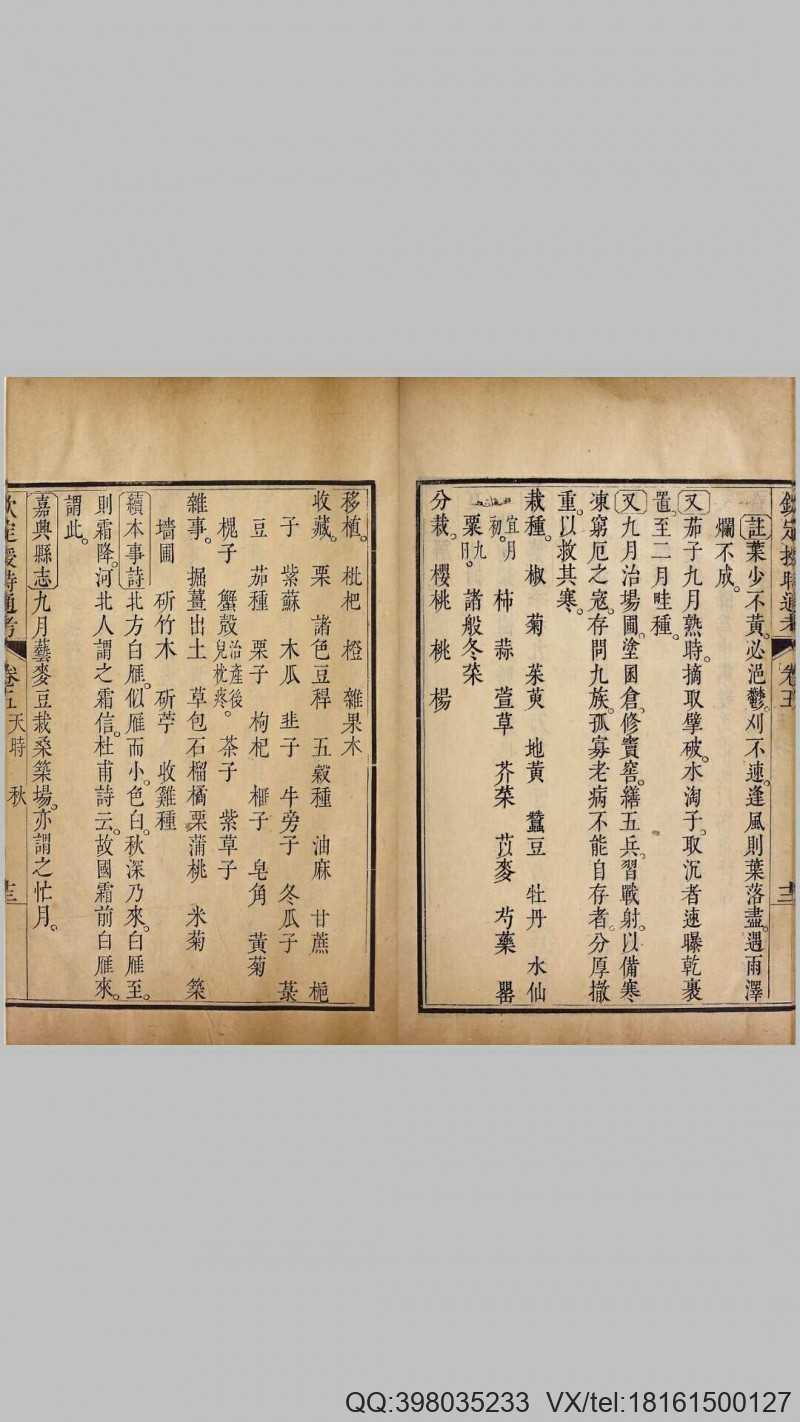 註葉少不黃必浥鬱刈不速逢風則葉落盡遇雨澤
爛不成
又茄子九月熟時摘取擘破水淘子取沉者速曝乾裹
置至二月畦種
又九月治場圃塗囷倉修竇窖繕五兵習戰射以備寒
凍窮厄之寇存問九族孤寡老病不能自存者分厚撤
重以救其寒
栽種 椒 菊 茱萸 地黃 蠶豆 牡丹 水仙
宜月初 柿 蒜 萱草 芥菜 苡麥 芍藥 罌
粟九日 諸般冬菜
分栽 櫻桃 桃 楊
移植 枇杷 橙 雜果木
收藏 栗 諸色豆稈 五穀種 油麻 甘蔗 梔
子 紫蘇 木瓜 韭子 牛旁子 冬瓜子 葉
豆 茄種 栗子 枸杞 榧子 皂角 黃菊
槐子 蟹殼治產後兒枕疼 茶子 紫草子
雜事 掘薑出土 草包石榴橘栗蒲桃 米菊 築
墻圃 斫竹木 斫苧 收雞種
續本事詩北方白雁似雁而小色白秋深乃來白雁至
則霜降河北人謂之霜信杜甫詩云故國霜前白雁來
謂此
嘉興縣志九月藝麥豆栽桑築場亦謂之忙月
欽定授時通考 卷五 天時 秋 十三
QQ:398035233 VX/tel:18161500127